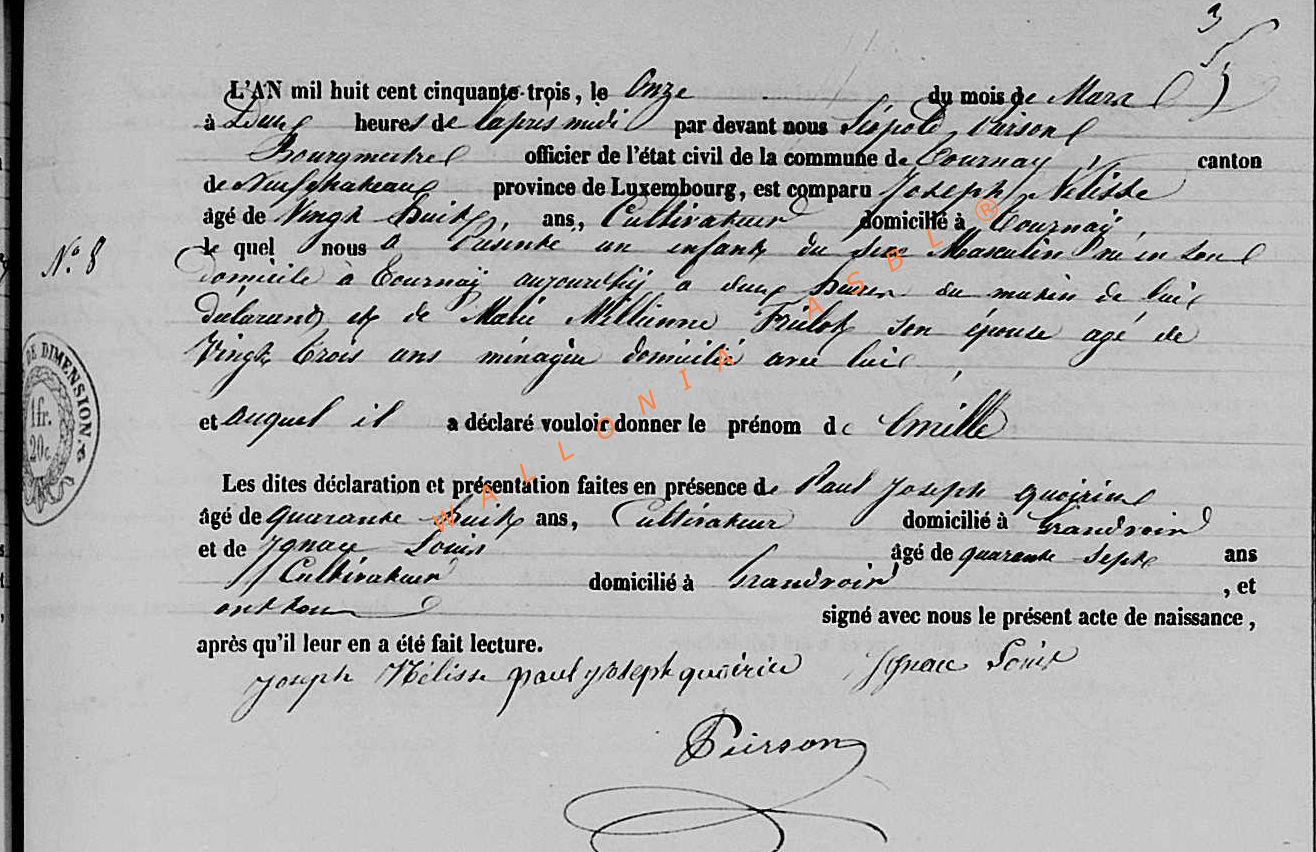 3
5
L'AN mil huit cent cinquante-trois, le Onze du mois de Mars
à Deux heures de laprès midi par devant nous Léopold Pirson
Bourgmestre officier de l'état civil de la commune de Tournay, canton
de Neufchateau province de Luxembourg, est comparu Joseph Nélisse
âgé de Vingt huit, ans, Cultivateur domicilié à Tournaÿ,
N.° 8
le quel nous a présenté un enfant du sexe Masculin né en son
domicile à Tournaÿ aujourdhij a deux heures du matin de lui
déclarant et de Marie Millienne Frulot son épouse agé de
Vingt trois ans ménagère domicilié avec lui,
DE DIMENSION.
1 fr.
20 c.
et auquel il a déclaré vouloir donner le prénom de Emille
Les dites déclaration et présentation faites en présence de Paul Joseph quoirin
âgé de quarante huit ans, Cultivateur domicilié à Grandvoir
et de Ignace Louis âgé de quarante sept ans
Cultivateur domicilié à Grandvoir, et
ont tous signé avec nous le présent acte de naissance,
après qu'il leur en a été fait lecture.
Joseph Nélisse paul joseph quoirin Ignace Louis
Pierson
WALLONIA ASBL ®